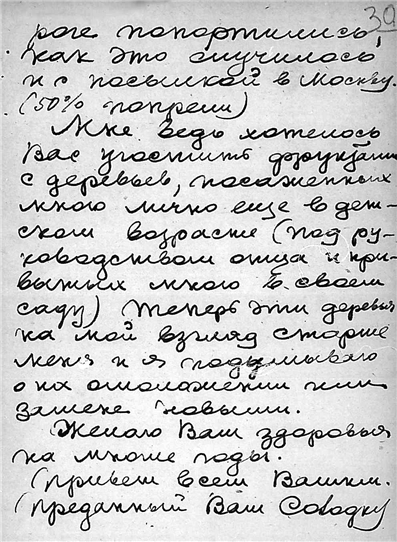 39
роге попортились
как это случилось
и с посылкой в Москву.
(50% попрели)
Мне ведь хотелось
Вас угостить фруктами
с деревьев, посаженных
мною лично еще в дет-
ском возрасте (под ру-
ководством отца и при-
вытых мною в своем
саду) Теперь эти деревья
на мой взгляд старше
меня и я подумываю
о их омоложении или
замене новыми.
Желаю Вам здоровья
на многие годы.
Привет всем Вашим.
Преданный Вам